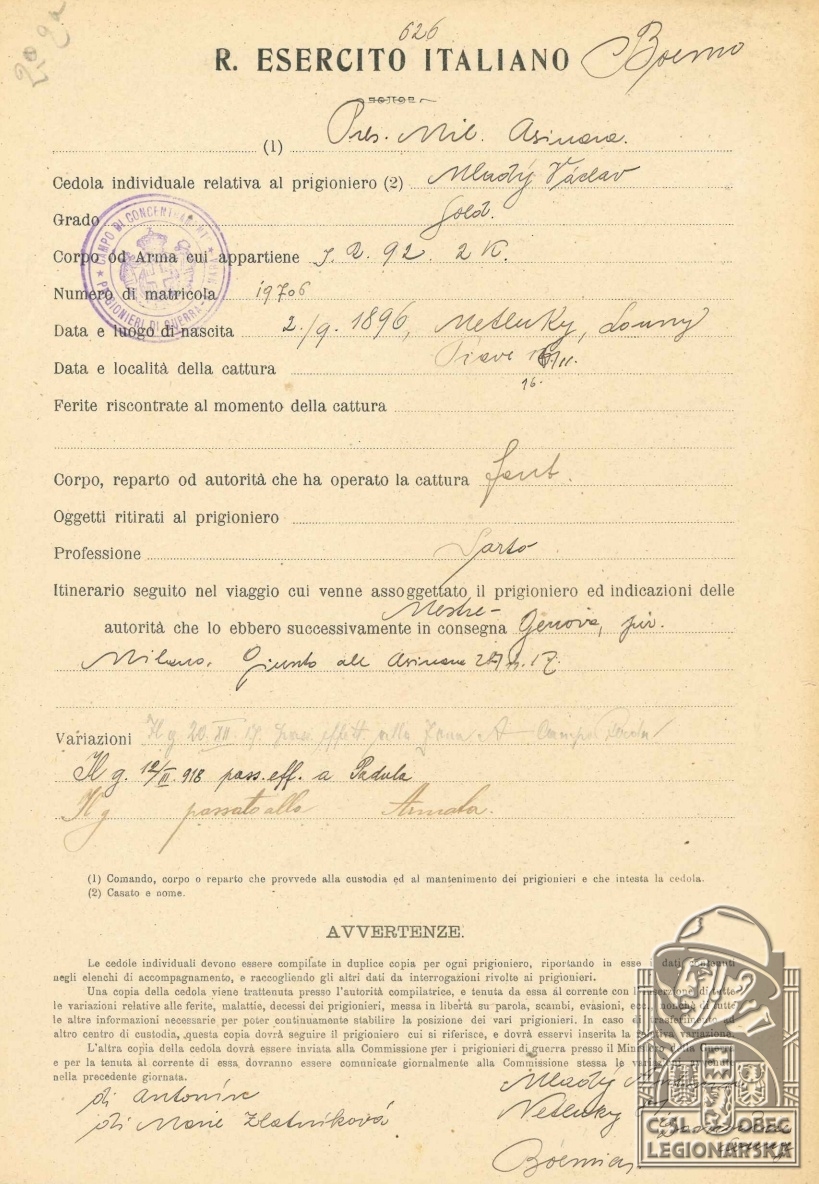 626
R. ESERCITO ITALIANO Boemo
(1) Pres. Mil. Asinara.
Cedola individuale relativa al prigioniero (2) Mladý Václav
Grado Sold.
Corpo od Arma cui appartiene J. R. 92. 2 K.
Numero di matricola 19706
Data e luogo di nascita 2./9. 1896, Netluky, Louny
Data e località della cattura Piave
16.
Ferite riscontrate al momento della cattura
Corpo, reparto od autorità che ha operato la cattura fant.
Oggetti ritirati al prigioniero
Professione Sarto
Itinerario seguito nel viaggio cui venne assoggettato il prigioniero ed indicazioni delle
Mestre-
autorità che lo ebbero successivamente in consegna Genova, pir.
Milano. Giunto all Asinara 17.
Variazioni Il g 20. XII. 17. effett. alla Zona A - Campo
Il g. 12/III. 918 pass. eff. a Padula
Il g passato alla Armata.
(1) Comando, corpo o reparto che provvede alla custodia ed al mantenimento dei prigionieri e che intesta la cedola.
(2) Casato e nome.
AVVERTENZE.
Le cedole individuali devono essere compilate in duplice copia per ogni prigioniero, riportando in esse i dati contenuti
negli elenchi di accompagnamento, e raccogliendo gli altri dati da interrogazioni rivolte ai prigionieri.
Una copia della cedola viene trattenuta presso l'autorità compilatrice, e tenuta da essa al corrente con l'inserzione di tutte
le variazioni relative alle ferite, malattie, decessi dei prigionieri, messa in libertà su parola, scambi, evasioni, ecc., nonchè di tutte
le altre informazioni necessarie per poter continuamente stabilire la posizione dei vari prigionieri. In caso di trasferimento ad
altro centro di custodia, questa copia dovrà seguire il prigioniero cui si riferisce, e dovrà esservi inserita la relativa variazione.
L'altra copia della cedola dovrà essere inviata alla Commissione per i prigionieri di guerra presso il Ministero della Guerra
e per la tenuta al corrente di essa, dovranno essere comunicate giornalmente alla Commissione stessa le variazioni
nella precedente giornata.
di Antonín
di Marie Zlatníková
Mladý
Netluky
Boemia
CAMPO DI CONCENTRAMENT
PRIGIONIERI DI GUERRA
ČSL OBEC
LEGIONÁŘSKÁ